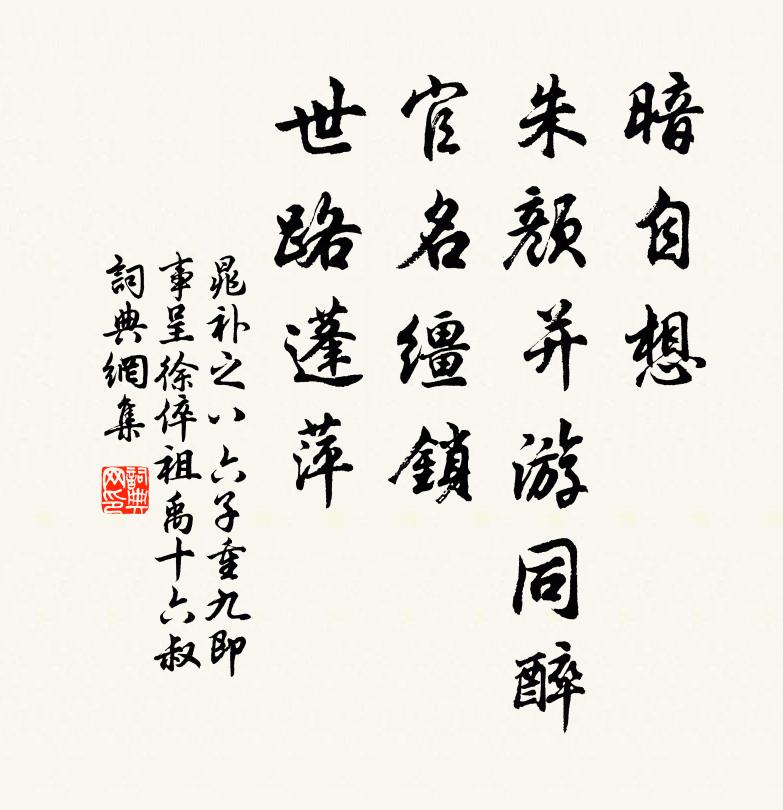 暗自想
朱顏并游同醉
官名繮鎖
世路蓬萍
晁補之八六子重九即
事呈徐倅祖禹十六叔
詞典網集
詞典网印